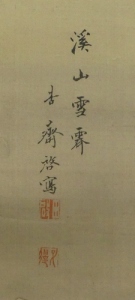 溪山雪霽
杏齋啓寫